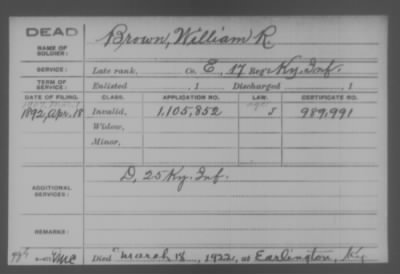 DEAD
NAME OF SOLDIER:
Brown, William R.
SERVICE:
Late rank, Co. E, 17 Reg't Ky. Inf.
TERM OF SERVICE:
Enlisted , 1 Discharged , 1
DATE OF FILING. CLASS. APPLICATION NO. LAW. CERTIFICATE NO.
1892, Apr. 18 Invalid, 1,105,852 J 989,991
Widow,
Minor,
ADDITIONAL SERVICES:
D, 25 Ky. Inf.
REMARKS:
Died March 18, 1922, at Earlington, Ky.